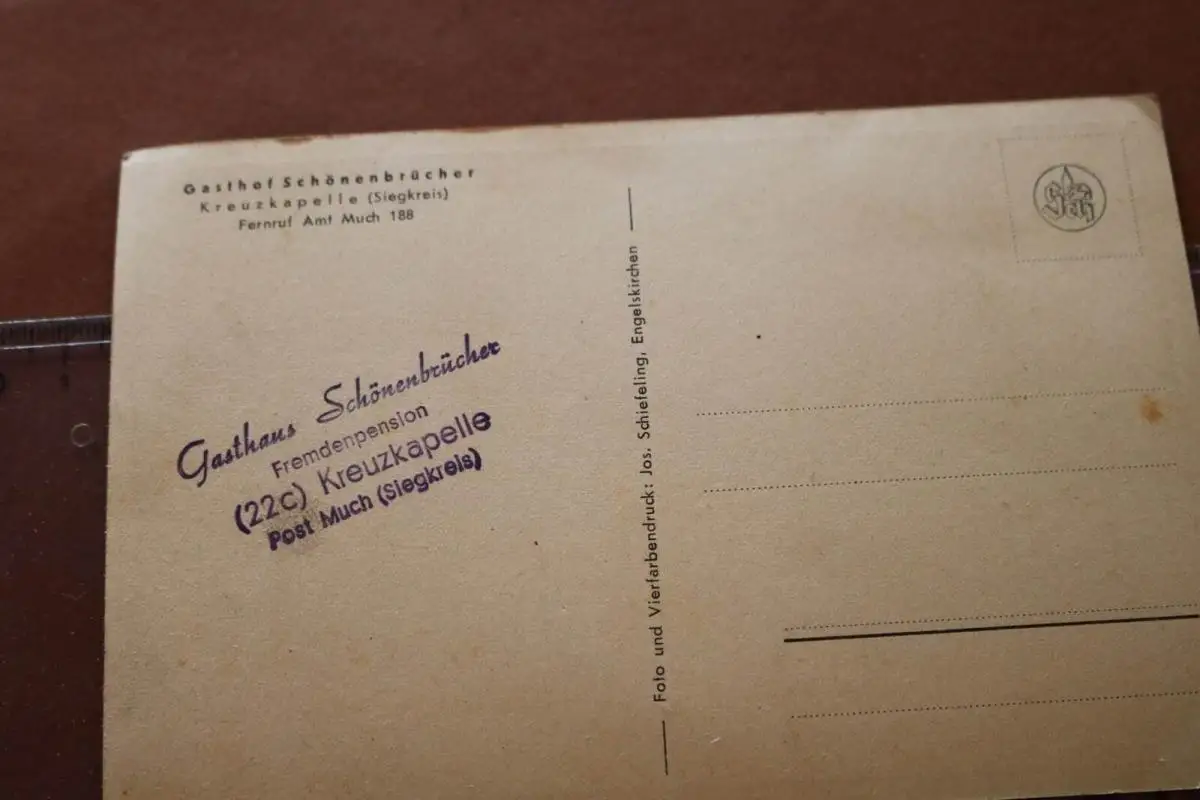 Gasthof Schönenbrücher
Kreuzkapelle (Siegkreis)
Fernruf Amt Much 188
Gasthaus Schönenbrücher
Fremdenpension
(22c) Kreuzkapelle
Post Much (Siegkreis)
Foto und Vierfarbendruck: Jos. Schiefeling, Engelskirchen
1